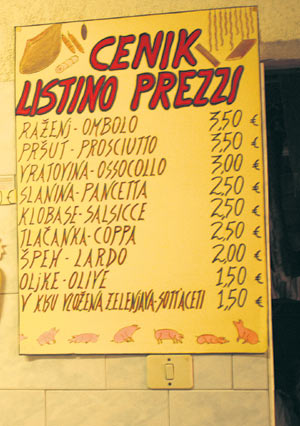 CENIK
LISTINO PREZZI
RAŽENJ - OMBOLO 3,50 €
PRŠUT - PROSCIUTTO 3,50 €
VRATOVINA - OSSOCOLLO 3,00 €
SLANINA - PANCETTA 2,50 €
KLOBASE - SALSICCE 2,50 €
TLAČANKA - COPPA 2,50 €
ŠPEH - LARDO 2,00 €
OLJKE - OLIVE 1,50 €
V KISU VLOŽENA ZELENJAVA - SOTTACETI 1,50 €